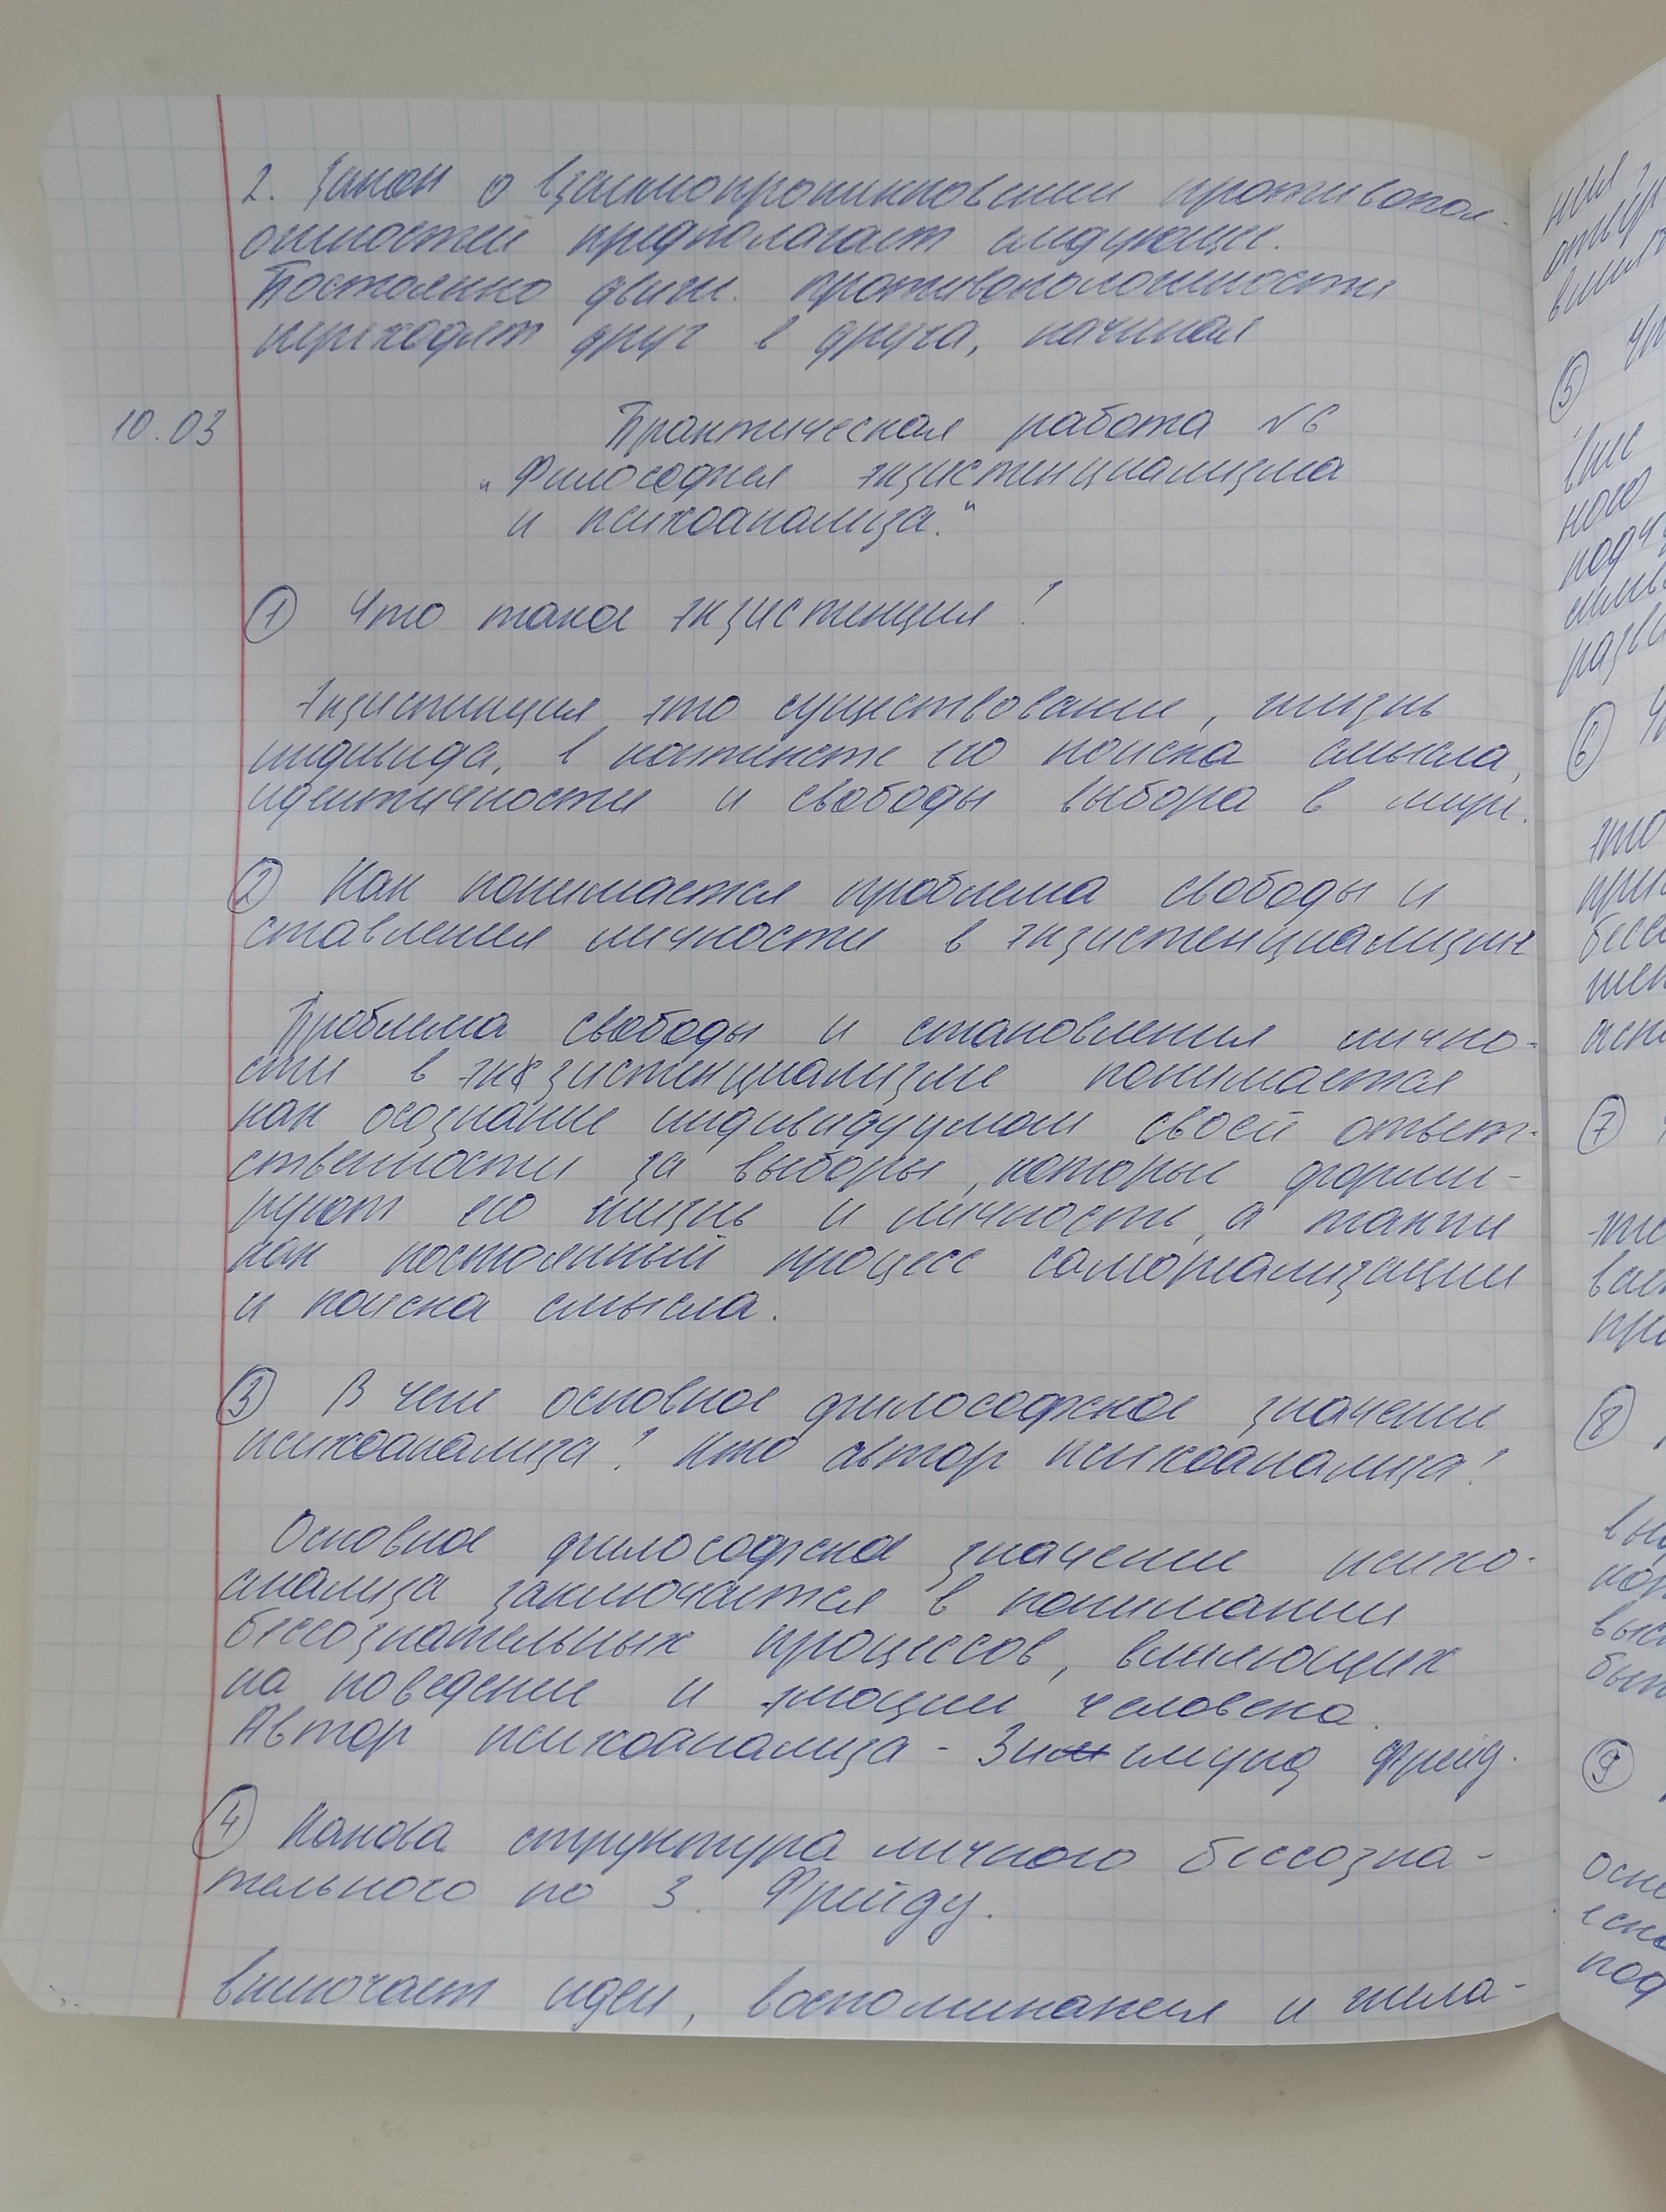 2. Закон о взаимопроникновении противопол-
ожностей предполагает следующее.
Постоянно движ. противоположности
переходят друг в друга, начиная
10.03
Практическая работа №6
"Философия экзистенциализма
и психоанализа."
① Что такое экзистенция?
Экзистенция это существование, жизнь
индивида, в контексте его поиска смысла,
идентичности и свободы выбора в мире.
② Как понимается проблема свободы и
ставления личности в экзистенциализме
Проблема свободы и становления лично-
сти в экзистенциализме понимается
как осознание индивидуумом своей ответ-
ственности за выборы, которые форми-
руют его жизнь и личность, а также
как постоянный процесс самореализации
и поиска смысла.
③ В чем основное философское значение
психоанализа? Кто автор психоанализа?
Основное философское значение психо-
анализа заключается в понимании
бессознательных процессов, влияющих
на поведение и эмоции человека.
Автор психоанализа - Зигмунд Фрейд.
④ Какова структура личного бессозна-
тельного по З. Фрейду.
включает идеи, воспоминания и жела-
ния
⑤
ного
⑥
это
⑦
⑧
⑨
под